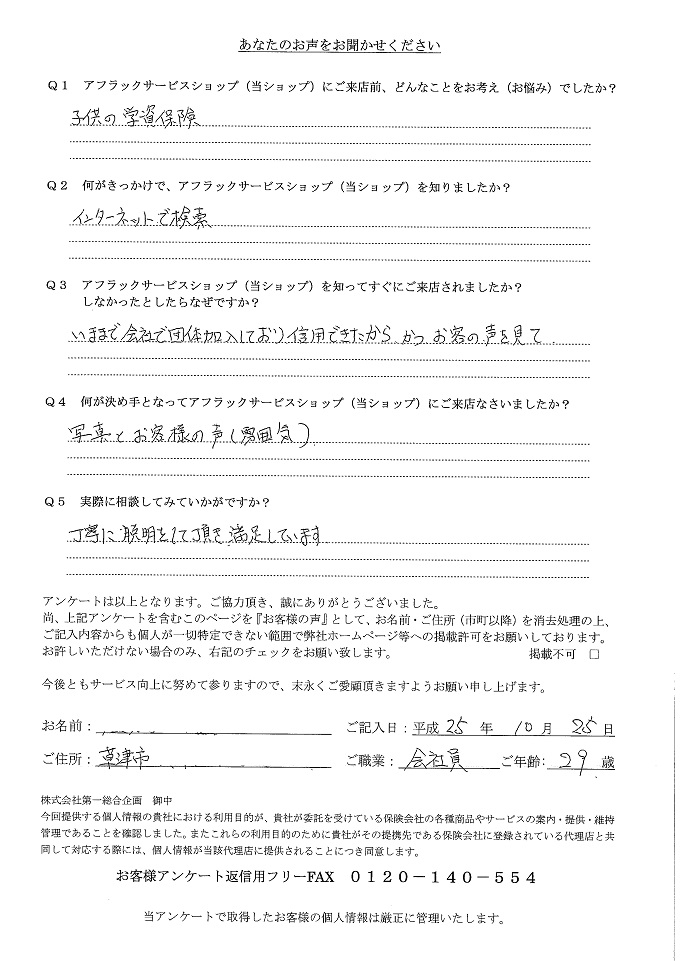 あなたのお声をお聞かせください
Ｑ１　アフラックサービスショップ（当ショップ）にご来店前、どんなことをお考え（お悩み）でしたか？
子供の学資保険
Ｑ２　何がきっかけで、アフラックサービスショップ（当ショップ）を知りましたか？
インターネットで検索
Ｑ３　アフラックサービスショップ（当ショップ）を知ってすぐにご来店されましたか？
しなかったとしたらなぜですか？
いままで会社で団体加入しており信用できたから、かつ お客の声を見て
Ｑ４　何が決め手となってアフラックサービスショップ（当ショップ）にご来店なさいましたか？
写真とお客様の声（雰囲気）
Ｑ５　実際に相談してみていかがですか？
丁寧に説明をして頂き満足しています
アンケートは以上となります。ご協力頂き、誠にありがとうございました。
尚、上記アンケートを含むこのページを『お客様の声』として、お名前・ご住所（市町以降）を消去処理の上、
ご記入内容からも個人が一切特定できない範囲で弊社ホームページ等への掲載許可をお願いしております。
お許しいただけない場合のみ、右記のチェックをお願い致します。　掲載不可　□
今後ともサービス向上に努めて参りますので、末永くご愛顧頂きますようお願い申し上げます。
お名前：　ご記入日：平成 25 年 10 月 25 日
ご住所：草津市　ご職業：会社員　ご年齢：29 歳
株式会社第一総合企画　御中
今回提供する個人情報の貴社における利用目的が、貴社が委託を受けている保険会社の各種商品やサービスの案内・提供・維持
管理であることを確認しました。またこれらの利用目的のために貴社がその提携先である保険会社に登録されている代理店と共
同して対応する際には、個人情報が当該代理店に提供されることにつき同意します。
お客様アンケート返信用フリーFAX　０１２０－１４０－５５４
当アンケートで取得したお客様の個人情報は厳正に管理いたします。